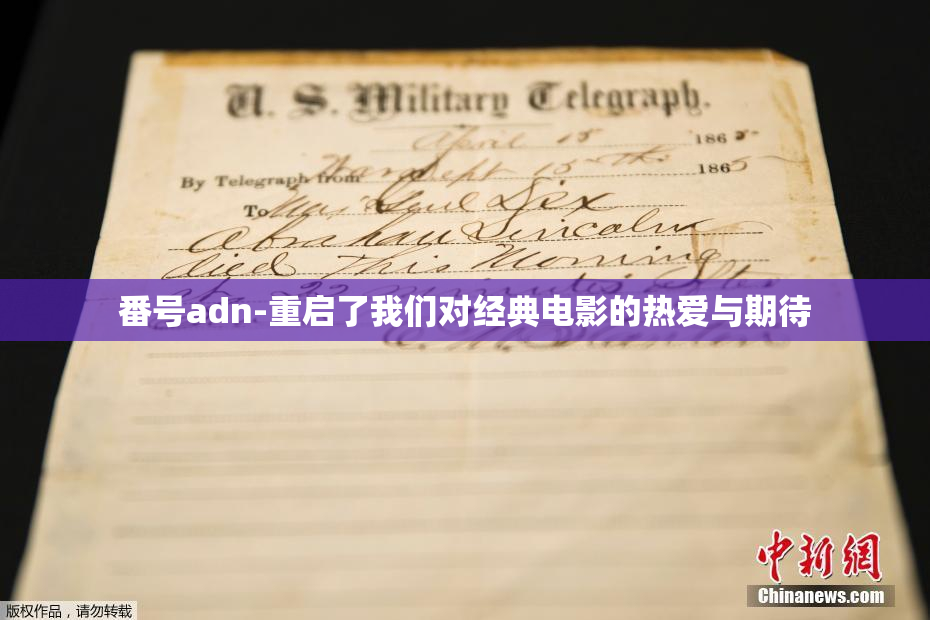 U. S. Military Telegraph.
April 15 1865.
By Telegraph from War Dept 15th 1865
To Maj Genl Dix
Abraham Lincoln
died This Morning
at 22 minutes after
番号adn-重启了我们对经典电影的热爱与期待
E. M. Stanton
中新網
Chinanews.com
版权作品，请勿转载